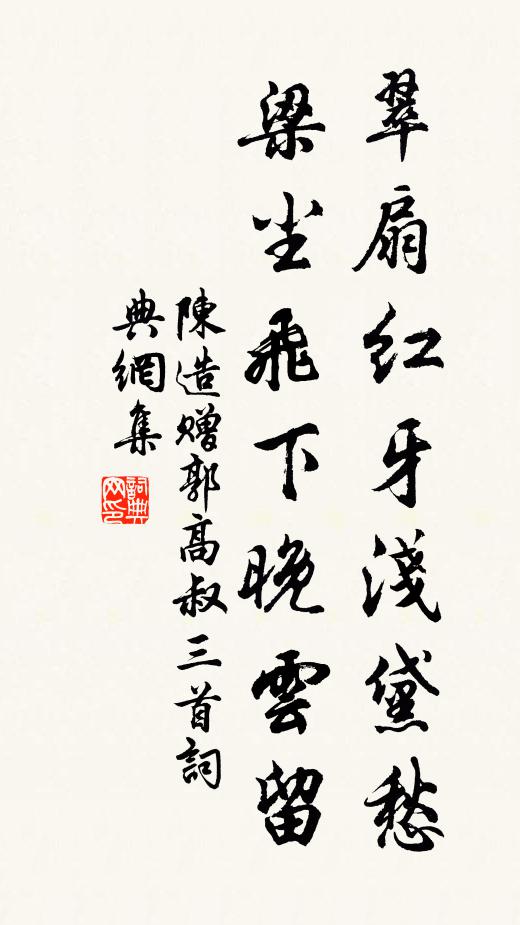 翠扇红牙淺黛愁
梁尘飛下晚雲留
陳造赠郭高叔三首詞
典網集
詞典
网印